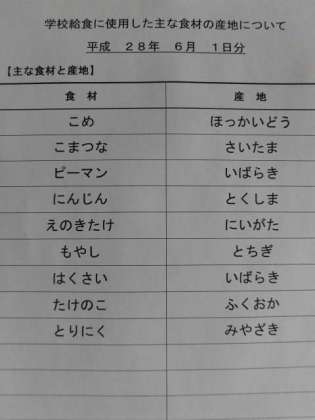 学校給食に使用した主な食材の産地について
平成　２８年　６月　１日分
【主な食材と産地】
食　材　産　地
こめ　ほっかいどう
こまつな　さいたま
ピーマン　いばらき
にんじん　とくしま
えのきたけ　にいがた
もやし　とちぎ
はくさい　いばらき
たけのこ　ふくおか
とりにく　みやざき